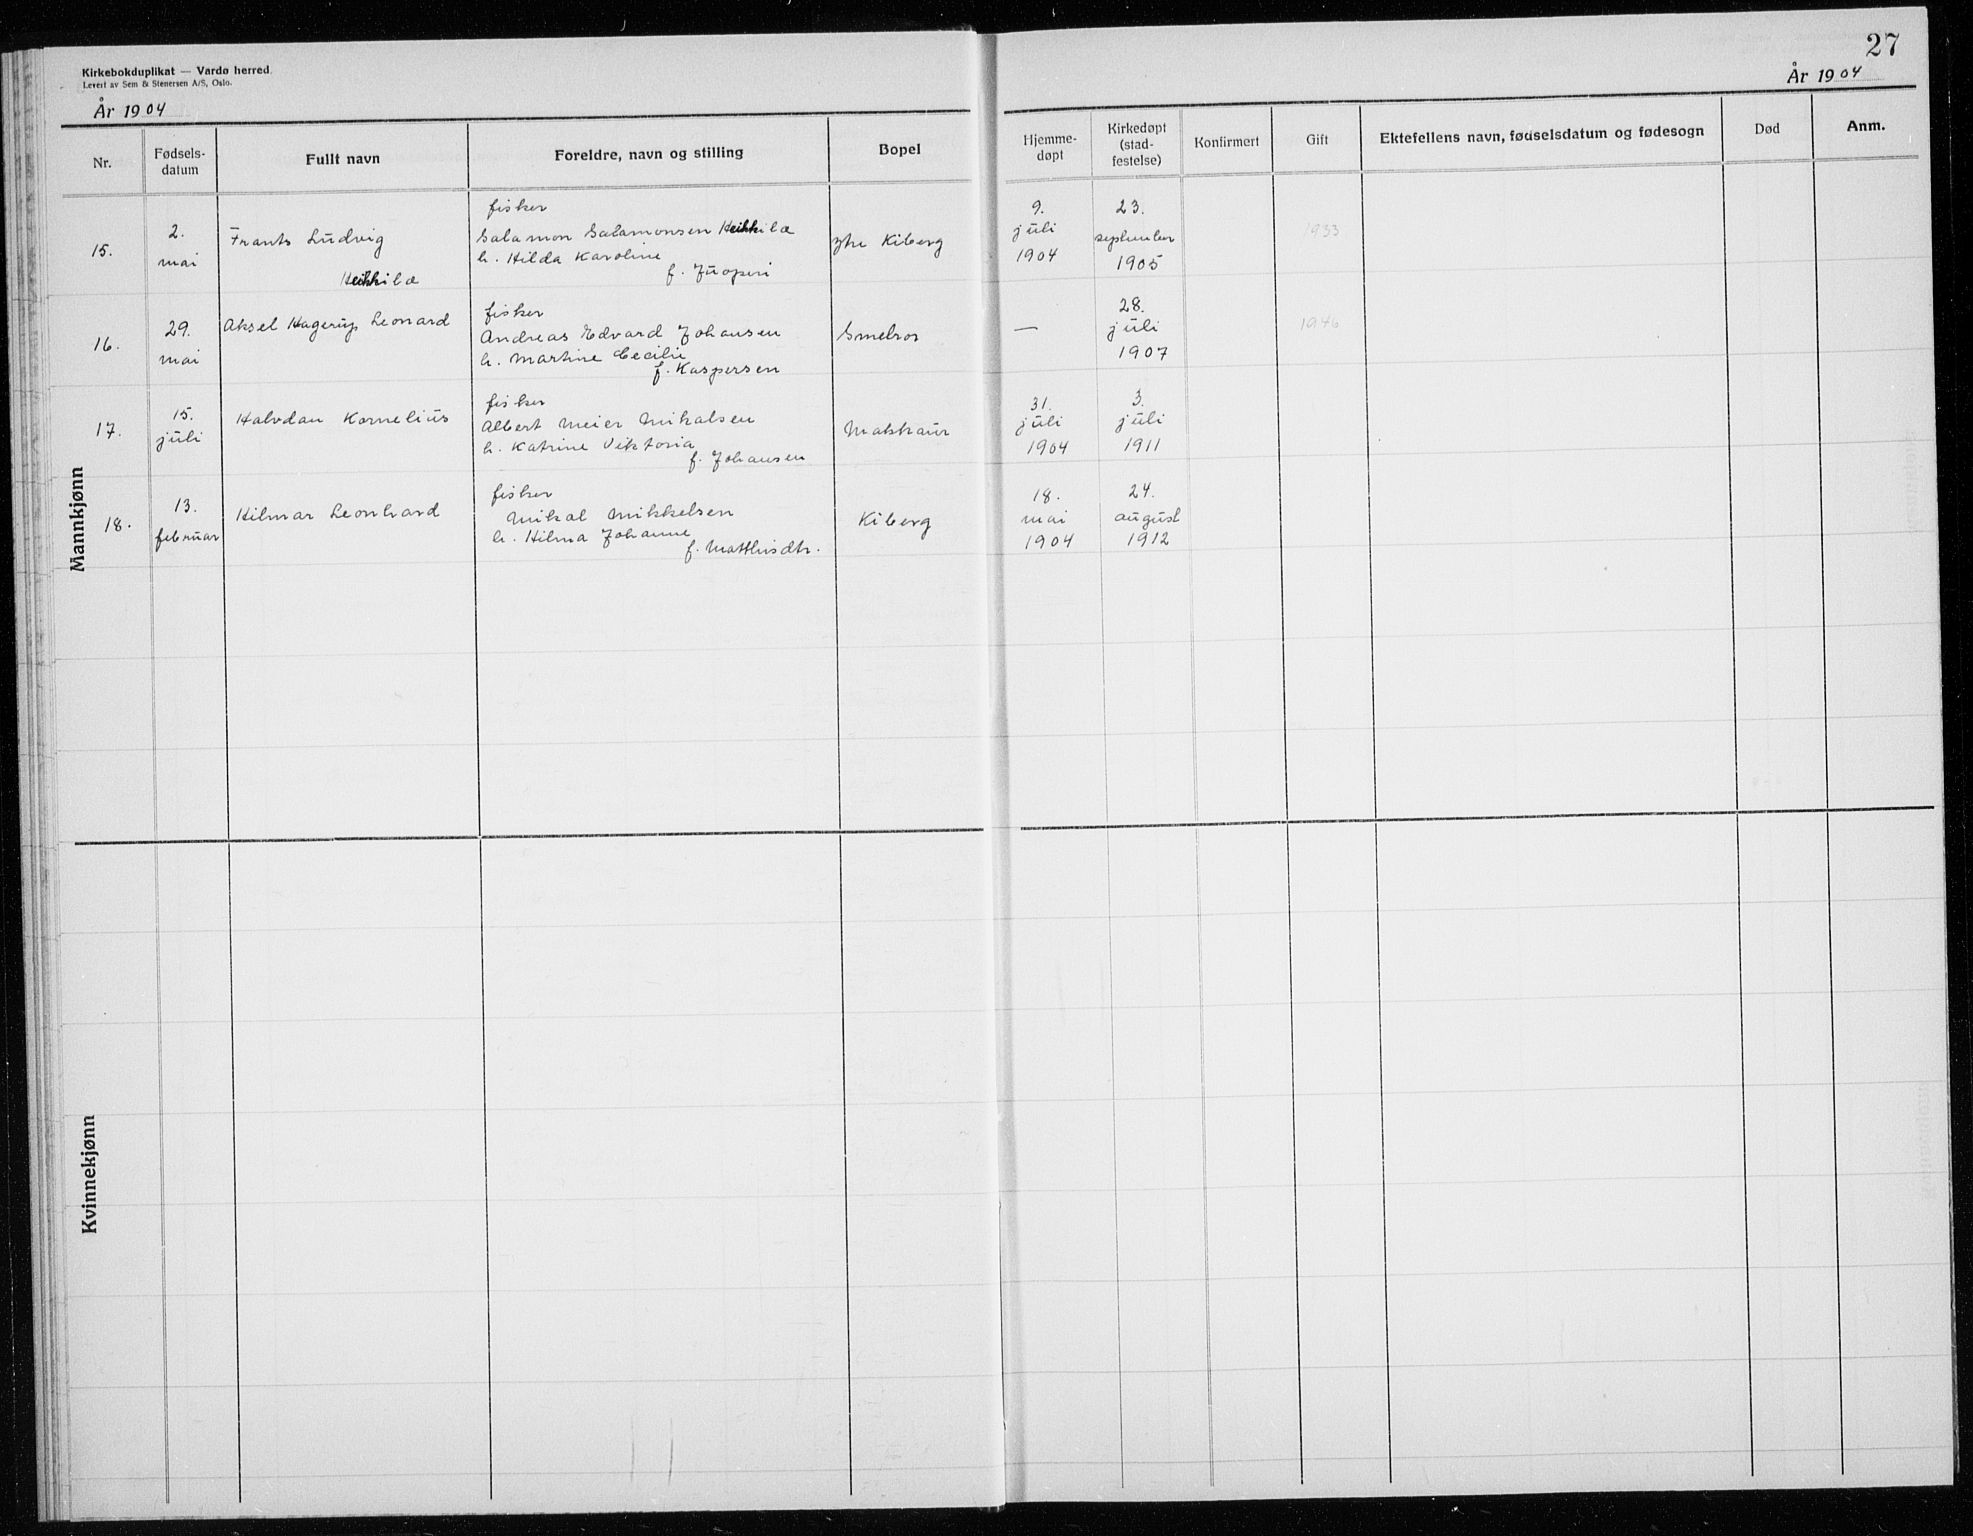 Kirkebokduplikat — Vardø herred.
Levert av Sem & Stenersen A/S, Oslo.
År 1904
27
År 1904
Nr.
Fødsels-
datum
Fullt navn
Foreldre, navn og stilling
Bopel
Hjemme-
døpt
Kirkedøpt
(stad-
festelse)
Konfirmert
Gift
Ektefellens navn, fødselsdatum og fødesogn
Død
Anm.
Mannkjønn
15.
2.
mai
Frants Ludvig
Heikkilæ
fisker
Salamon Salamonsen Heikkilæ
h. Hilda Karoline
f. Juoperi
Kiberg
9.
juli
1904
23.
september
1905
1933
16.
29.
mai
Aksel Hagerup Leonard
fisker
Andreas Edvard Johansen
h. Martine Cecilie
f. Kaspersen
Smelror
—
28.
juli
1907
1946
17.
15.
juli
Halvdan Kornelius
fisker
Albert Meier Mikalsen
h. Katrine Viktoria
f. Johansen
Matskaur
31.
juli
1904
3.
juli
1911
18.
13.
februar
Hilmar Leonhard
fisker
Mikal Mikkelsen
h. Hilma Johanne
f. Matthisdtr.
Kiberg
18.
mai
1904
24.
august
1912
Kvinnekjønn